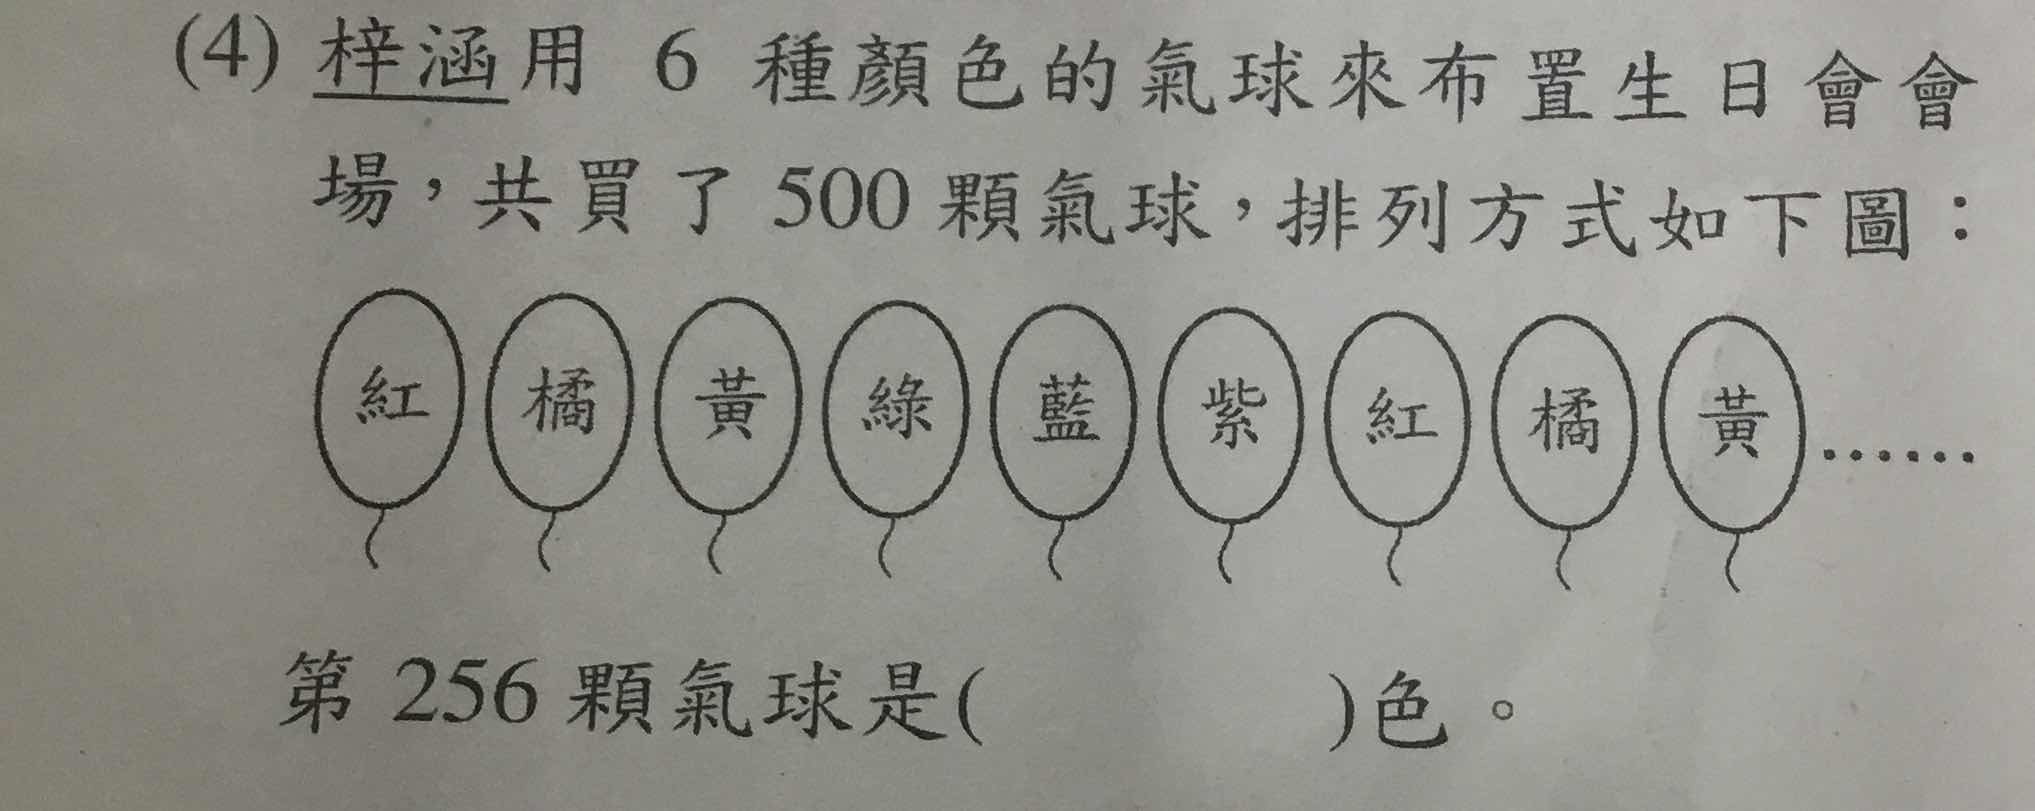 (4) 梓涵用 6 種顏色的氣球來布置生日會會
場，共買了 500 顆氣球，排列方式如下圖：
紅 橘 黃 綠 藍 紫 紅 橘 黃 ……
第 256 顆氣球是( )色。